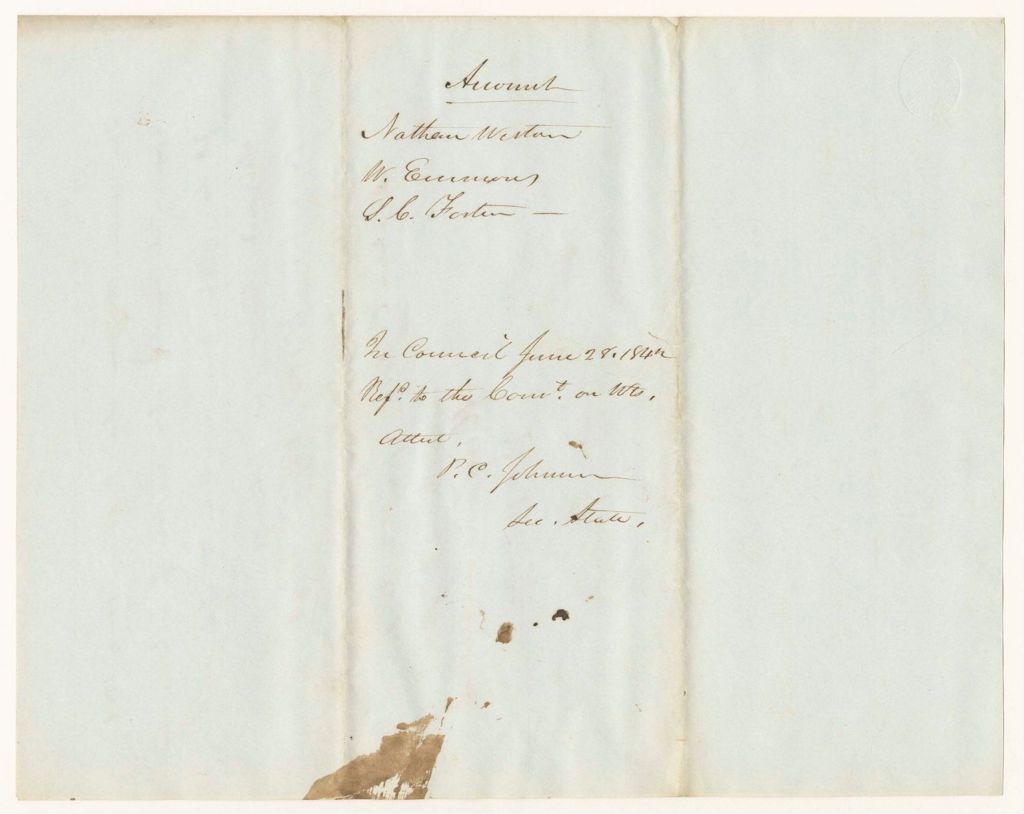 Account
Nathan Weston
W. Emmons
S. C. Foster —
In Council June 28. 1842
Refd. to the Comt. on Wts,
Attest,
P. C. Johnson
Sec. State,